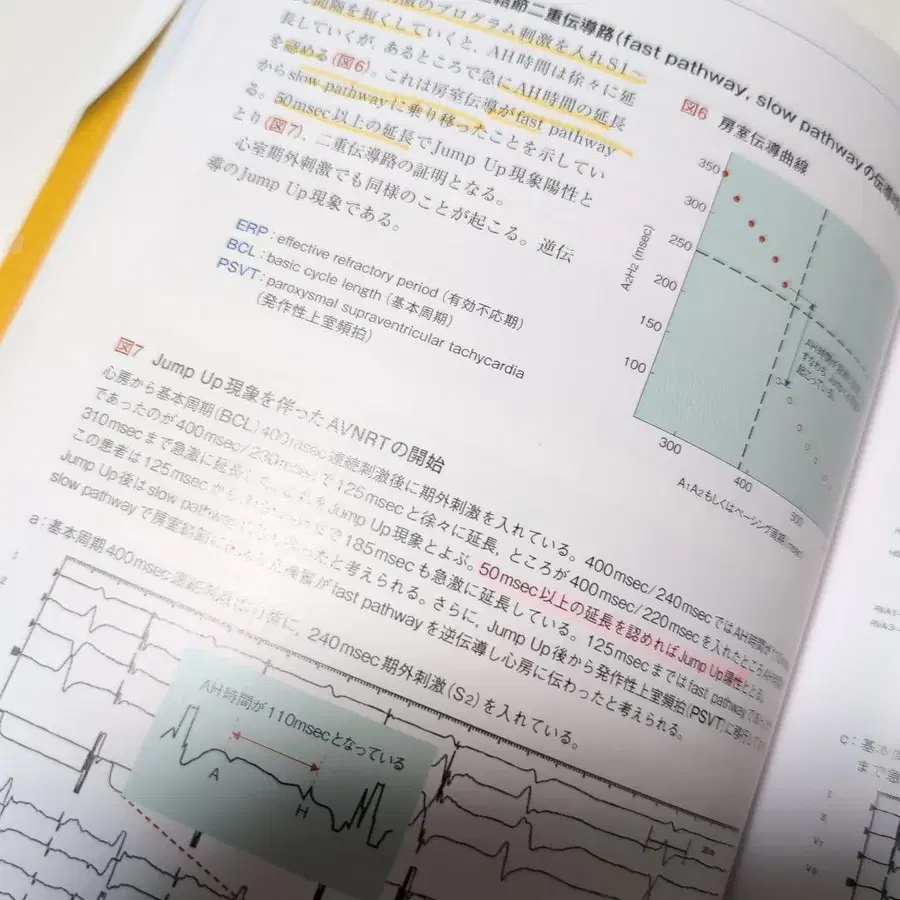 結節二重伝導路(fast pathway, slow pathwayの伝導
激のプログラム刺激を入れS1~
間隔を短くしていくと、AH時間は徐々に延
長していくが、あるところで急にAH時間の延長
を認める(図6)。これは房室伝導がfast pathway
からslow pathwayに乗り移ったことを示してい
る。50msec以上の延長でJump Up現象陽性と
とり(図7)、二重伝導路の証明となる。
心室期外刺激でも同様のことが起こる。逆伝
導のJump Up現象である。
ERP:effective refractory period(有効不応期)
BCL:basic cycle length(基本周期)
PSVT:paroxysmal supraventricular tachycardia
(発作性上室頻拍)
図6 房室伝導曲線
A2H2(msec)
350
300
250
200
150
100
300
400
500
A1A2もしくはペーシング周期(msec)
AH時間が
図7 Jump Up現象を伴ったAVNRTの開始
心房から基本周期(BCL)400msec連続刺激後に期外刺激を入れている。400msec/240msecではAH時間が110msec
であったのが400msec/230msecで125msecと徐々に延長,ところが400msec/220msecを入れたところAH時間
310msecまで急激に延長した。これをJump Up現象とよぶ。50msec以上の延長を認めればJump Up陽性ととる。
この患者は125msecから310msecまで185msecも急激に延長している。125msecまではfast pathwayであった
Jump Up後はslow pathwayに乗り移ったと考えられる。さらに,Jump Up後から発作性上室頻拍(PSVT)に移行
slow pathwayで房室結節にfast pathwayを逆伝導し心房に伝わったと考えられる。
a:基本周期400msec連続刺激を行った後に,240msec期外刺激(S2)を入れている。
AH時間が110msecとなっている
A
H
I
2
c:基本周
まで急
I
2
V1
V5